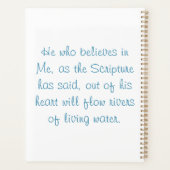 He who believes in
Me, as the Scripture
has said, out of his
heart will flow rivers
of living water.